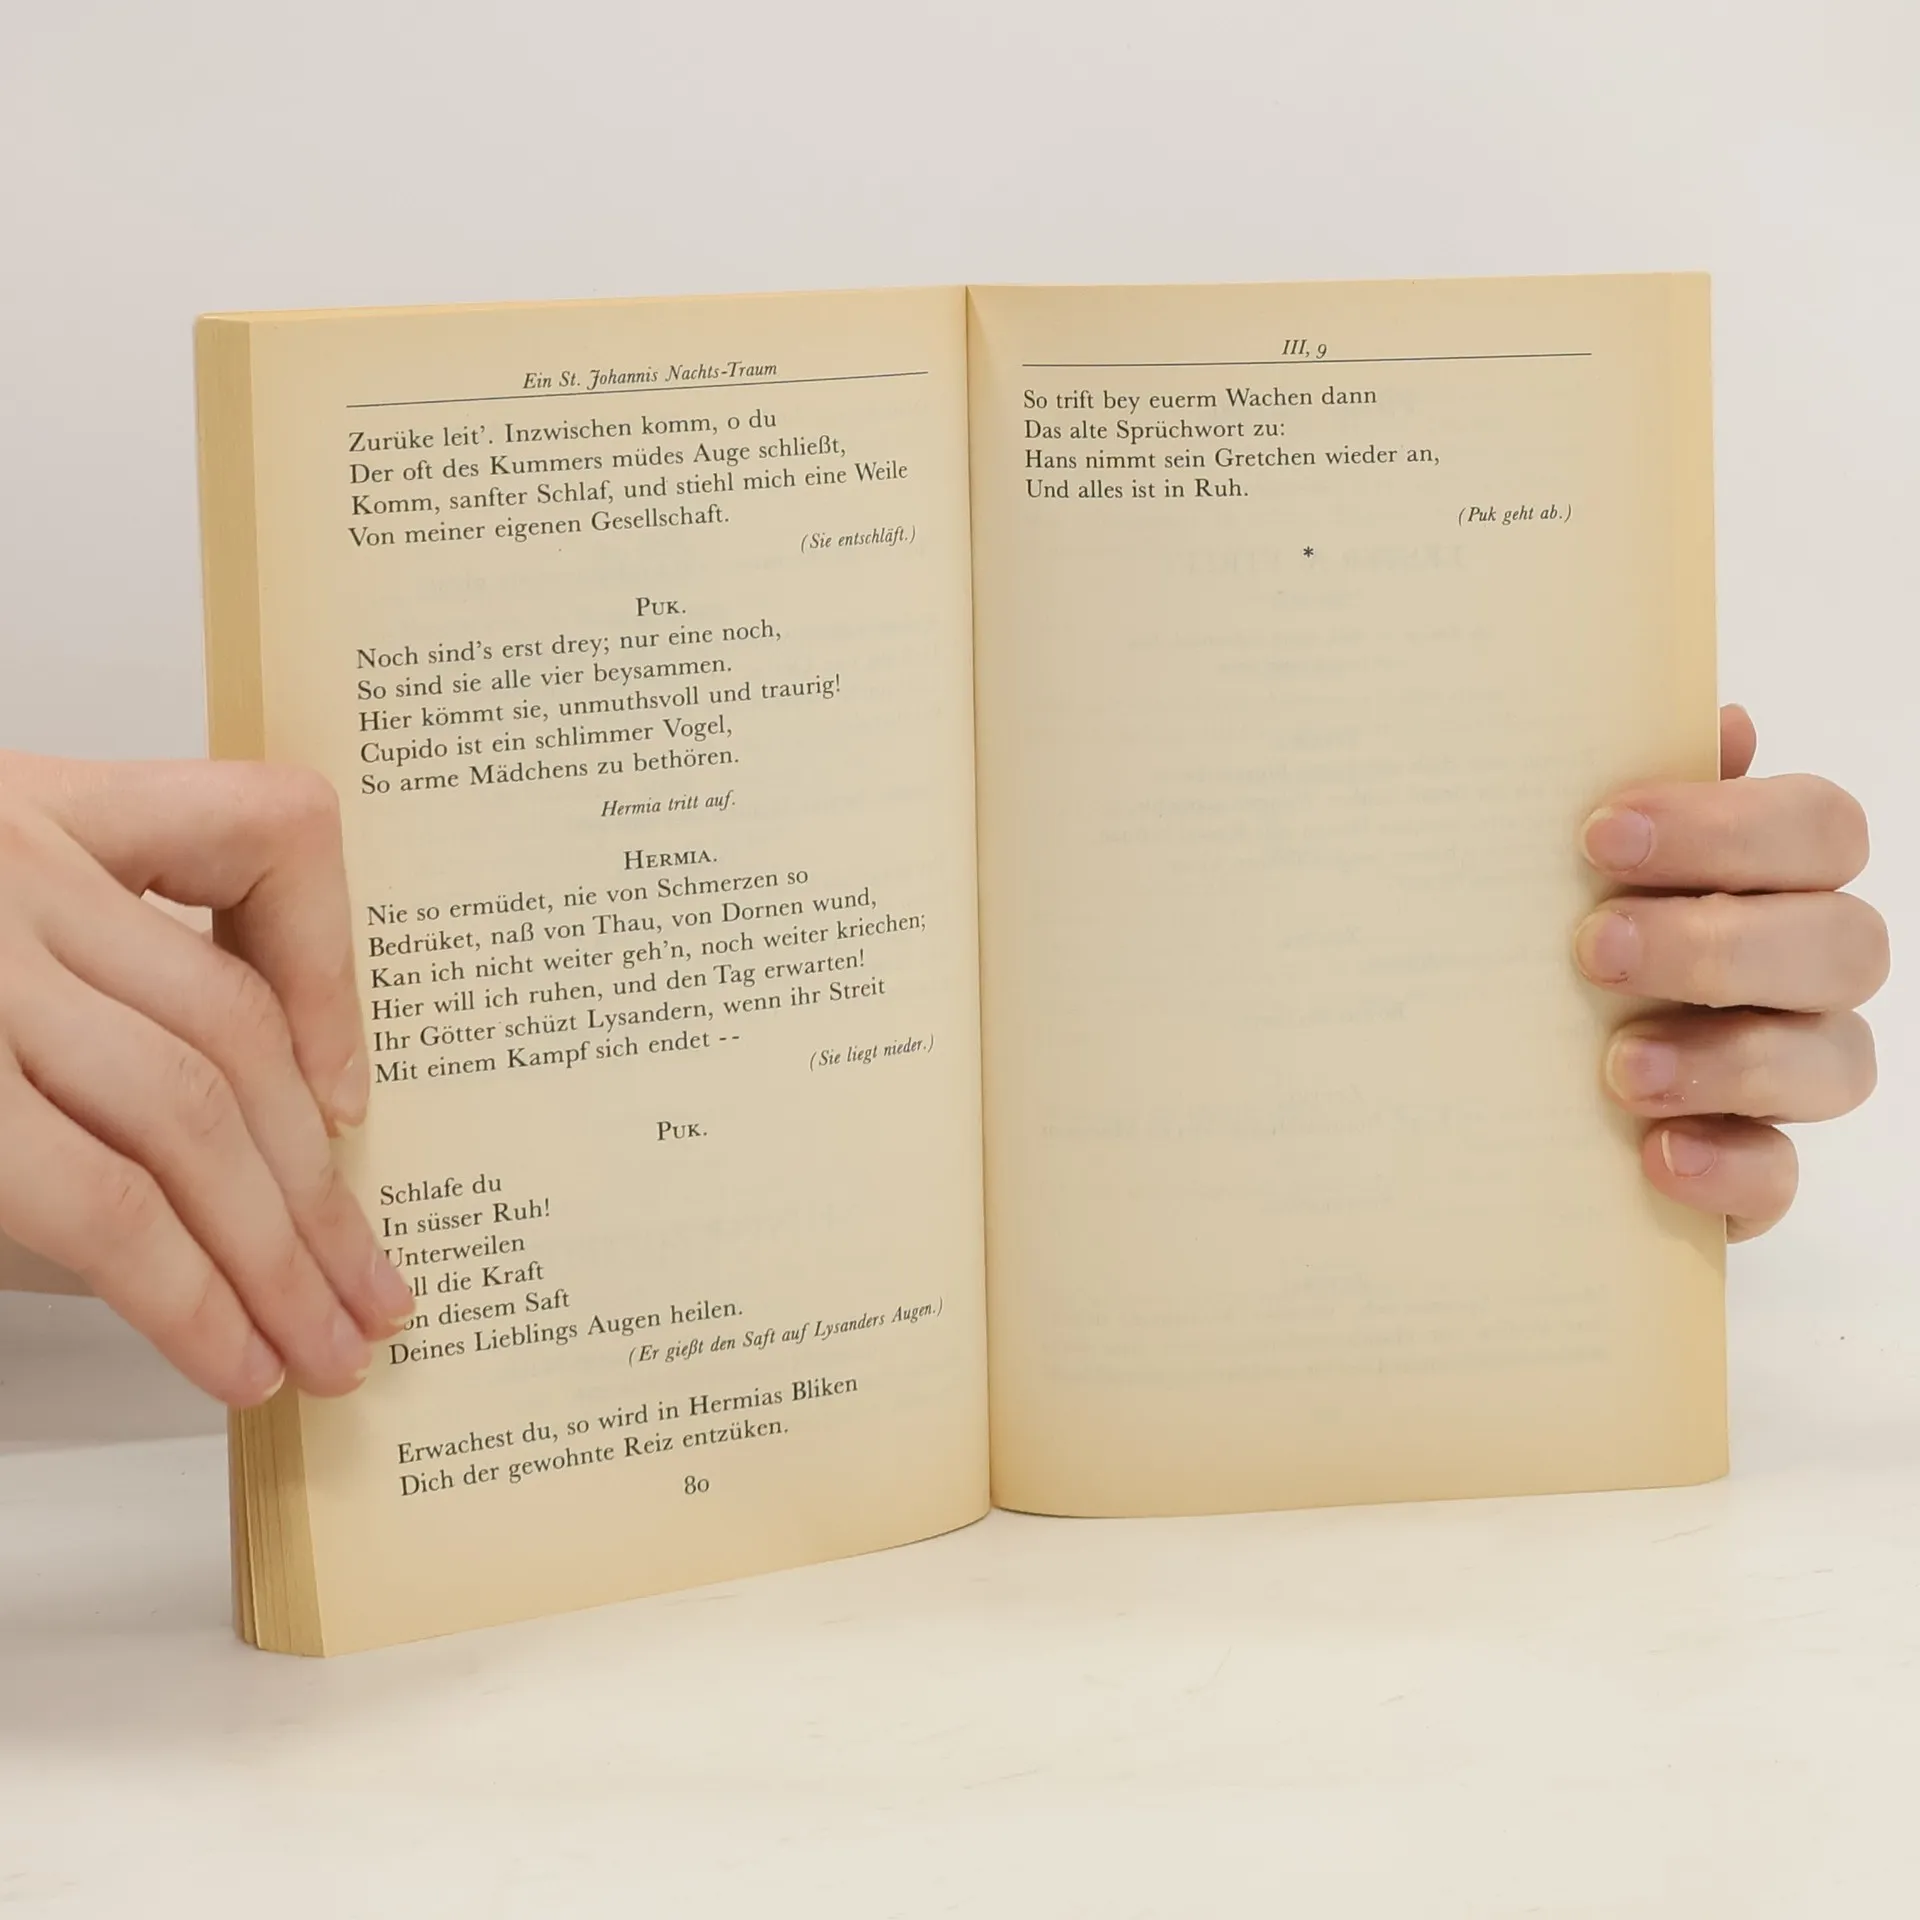 Ein St. Johannis Nachts-Traum
Zurüke leit’. Inzwischen komm, o du
Der oft des Kummers müdes Auge schließt,
Komm, sanfter Schlaf, und stiehl mich eine Weile
Von meiner eigenen Gesellschaft.
(Sie entschläft.)
PUK.
Noch sind’s erst drey; nur eine noch,
So sind sie alle vier beysammen.
Hier kömmt sie, unmuthsvoll und traurig!
Cupido ist ein schlimmer Vogel,
So arme Mädchens zu bethören.
Hermia tritt auf.
HERMIA.
Nie so ermüdet, nie von Schmerzen so
Bedrüket, naß von Thau, von Dornen wund,
Kan ich nicht weiter geh’n, noch weiter kriechen;
Hier will ich ruhen, und den Tag erwarten!
Ihr Götter schüzt Lysandern, wenn ihr Streit
Mit einem Kampf sich endet --
(Sie liegt nieder.)
PUK.
Schlafe du
In süsser Ruh!
Unterweilen
die Kraft
diesem Saft
Deines Lieblings Augen heilen.
(Er gießt den Saft auf Lysanders Augen.)
Erwachest du, so wird in Hermias Bliken
Dich der gewohnte Reiz entzüken.
80
III, 9
So trift bey euerm Wachen dann
Das alte Sprüchwort zu:
Hans nimmt sein Gretchen wieder an,
Und alles ist in Ruh.
(Puk geht ab.)
*